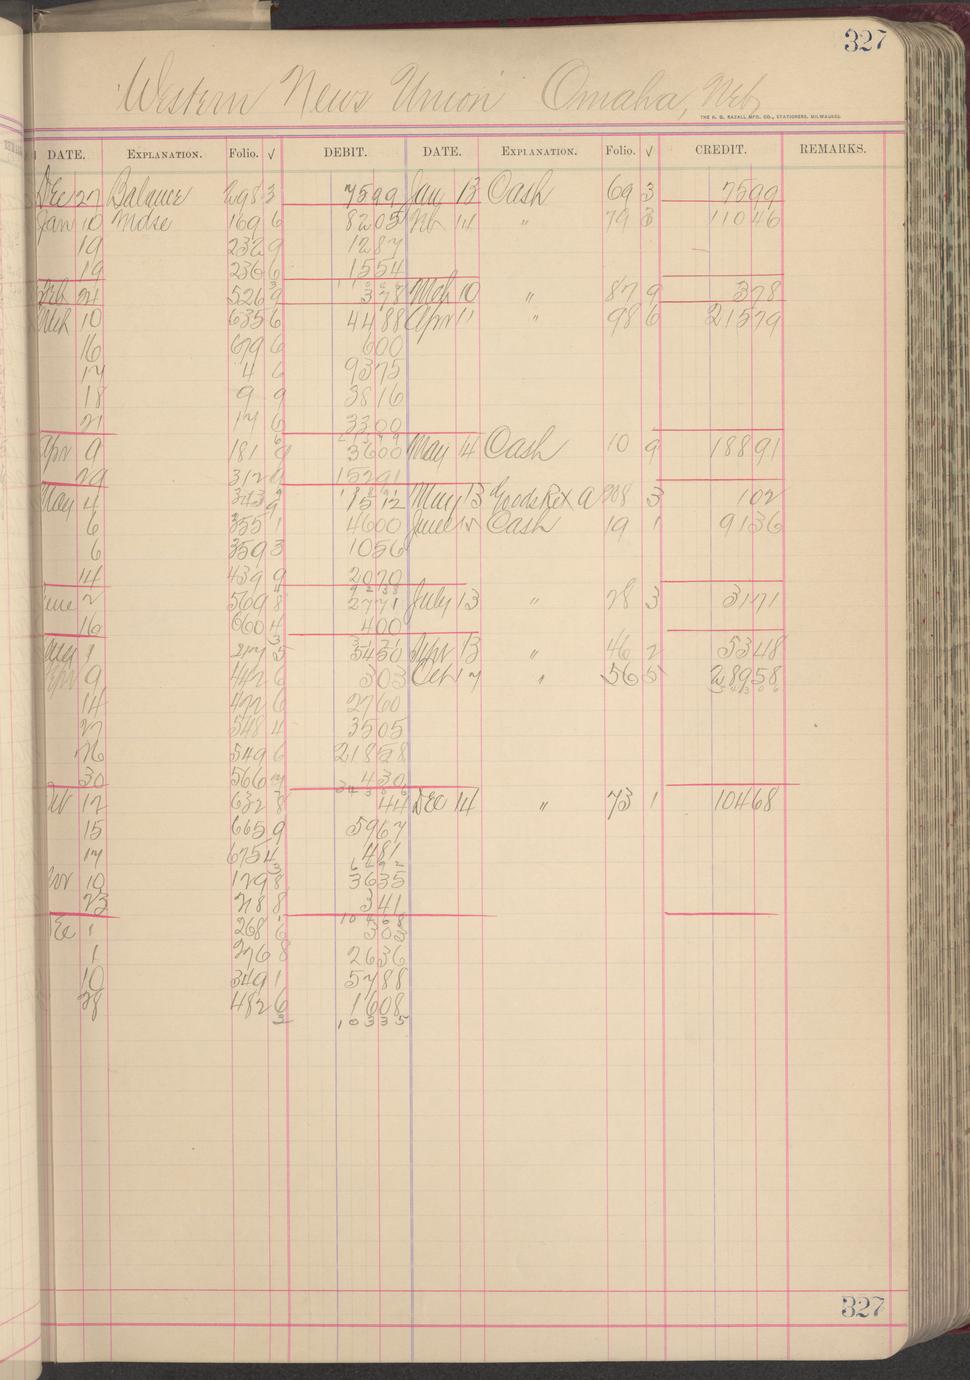 327
Western News Union Omaha, Neb,
THE H. G. RAZALL MFG. CO., STATIONERS, MILWAUKEE.
DATE. EXPLANATION. Folio. √ DEBIT. DATE. EXPLANATION. Folio. √ CREDIT. REMARKS.
Dec 27 Balance 298 3 7599 Jan 13 Cash 69 3 7599
Jan 10 Mdse 169 6 8205 Feb 14 " 79 3 11046
19 232 9 1287
19 236 6 1554
Feb 24 526 9 378 Mch 10 " 87 9 378
Mch 10 635 6 4488 Apr 11 " 98 6 21579
16 679 6 600
17 4 6 9375
18 9 9 3816
21 17 6 3300
Apr 9 181 9 3600 May 14 Cash 10 9 18891
29 312 15291
May 4 343 9 1512 May 13 Goods Ret A 208 3 102
6 355 1 4600 June 15 Cash 19 1 9136
6 359 3 1056
14 439 9 2070
June 2 569 8 2771 July 13 " 28 3 3171
16 660 4 400
3171
Aug 1 247 5 5450 13 " 46 2 5348
9 442 6 303 Oct 17 " 56 5 28958
14 472 6 2760
27 548 4 3505
26 549 6 21858
30 566 430
12 632 8 44 Dec 14 " 73 1 10468
15 665 9 5967
17 675 4 481
6492
Nov 10 129 8 3635
23 218 8 341
10468
Dec 1 268 6 303
1 276 8 2636
10 349 1 5788
28 482 6 1608
10335
327